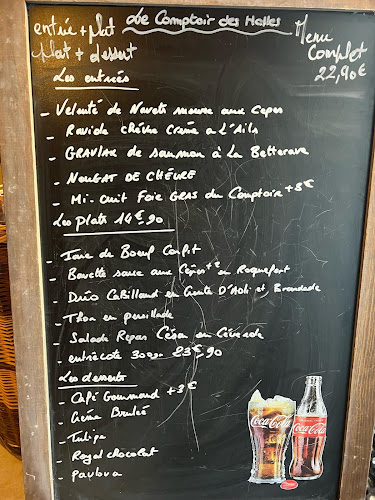 Le Comptoir des Halles
entrée + plat
plat + dessert
Menu
Complet
22,90€
Les entrées
- Velouté de Navets mousse aux Cepes
- Raviole chèvre Crème a L'Ail
- GRAVLAX de saumon à La Betterave
- NOUGAT DE CHÈVRE
- Mi-Cuit Foie GRAS du Comptoire +3€
Les plats 14€90
- Joue de Boeuf Confit
- Bavette sauce aux Cepes ou Roquefort
- Duo Cabillaud en Croute D'Aoli et Brandade
- Thon en persillade
- Salade Repas César ou Cévenole
- entrecote 300gr 23€90
Les desserts
- Café Gourmand +3€
- Crème Brulée
- Tulipe
- Royal chocolat
- Pavlova
Coca-Cola
Coca-Cola